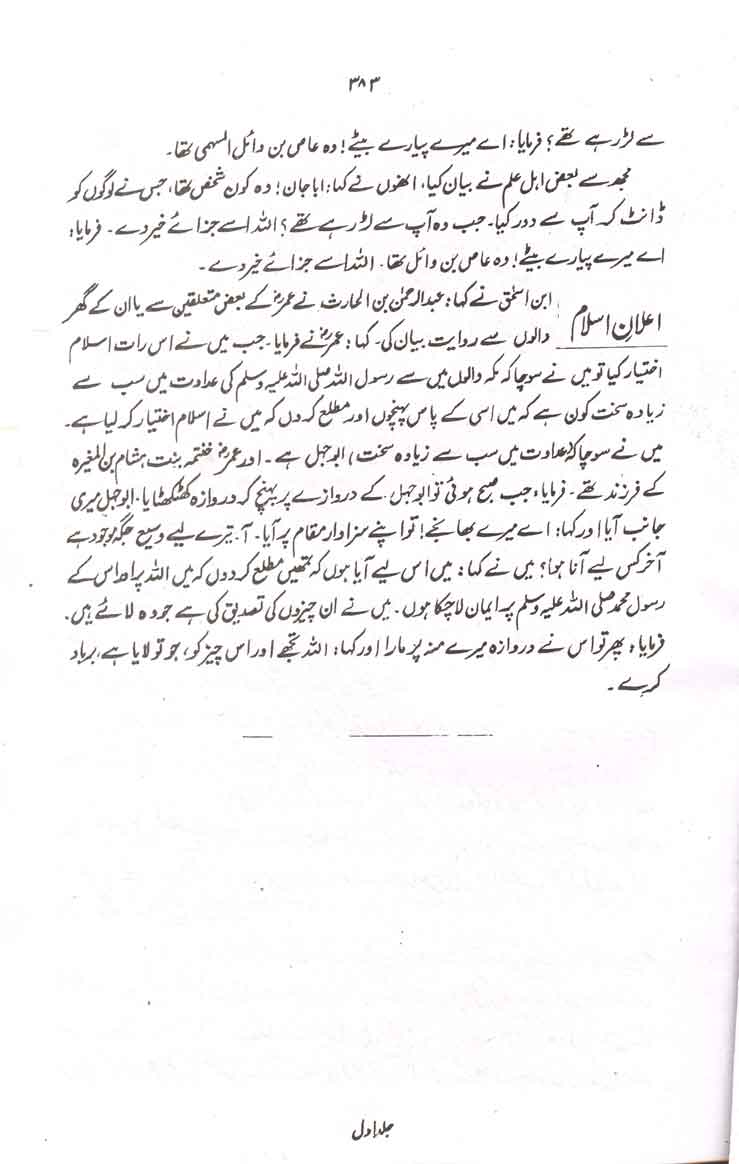 ۳۸۳
سے لڑ رہے تھے؟ فرمایا: اے میرے پیارے بیٹے! وہ عاص بن وائل السہمی تھا۔
مجھ سے بعض اہل علم نے بیان کیا، انھوں نے کہا: ابا جان! وہ کون شخص تھا، جس نے لوگوں کو
ڈانٹ کر آپ سے دور کیا۔ جب وہ آپ سے لڑ رہے تھے؟ اللہ اسے جزائے خیر دے۔ فرمایا:
اے میرے پیارے بیٹے! وہ عاص بن وائل تھا۔ اللہ اسے جزائے خیر دے۔
اعلانِ اسلام
ابن اسحٰق نے کہا: عبدالرحمٰن بن الحارث نے عمرؓ کے بعض متعلقین سے یا ان کے گھر
والوں سے روایت بیان کی۔ کہا: عمرؓ نے فرمایا۔ جب میں نے اس رات اسلام
اختیار کیا تو میں نے سوچا کہ مکہ والوں میں سے رسول اللہ صلی اللہ علیہ وسلم کی عداوت میں سب سے
زیادہ سخت کون ہے کہ میں اسی کے پاس پہنچوں اور مطلع کر دوں کہ میں نے اسلام اختیار کر لیا ہے۔
میں نے سوچا کہ (عداوت میں سب سے زیادہ سخت) ابوجہل ہے۔ اور عمرؓ ختمہ بنت ہشام بن المغیرہ
کے فرزند تھے۔ فرمایا: جب صبح ہوئی تو ابوجہل کے دروازے پر پہنچ کر دروازہ کھٹکھٹایا۔ ابوجہل میری
جانب آیا اور کہا: اے میرے بھانجے! تو اپنے سزاوار مقام پر آیا۔ آ۔ تیرے لیے وسیع جگہ موجود ہے
آخر کس لیے آنا ہوا؟ میں نے کہا: میں اس لیے آیا ہوں کہ تمھیں مطلع کر دوں کہ میں اللہ پر اور اس کے
رسول محمد صلی اللہ علیہ وسلم پر ایمان لا چکا ہوں۔ میں نے ان چیزوں کی تصدیق کی ہے جو وہ لائے ہیں۔
فرمایا: پھر تو اس نے دروازہ میرے منہ پر مارا اور کہا: اللہ تجھے اور اس چیز کو، جو تو لایا ہے، برباد
کرے۔
جلد اول